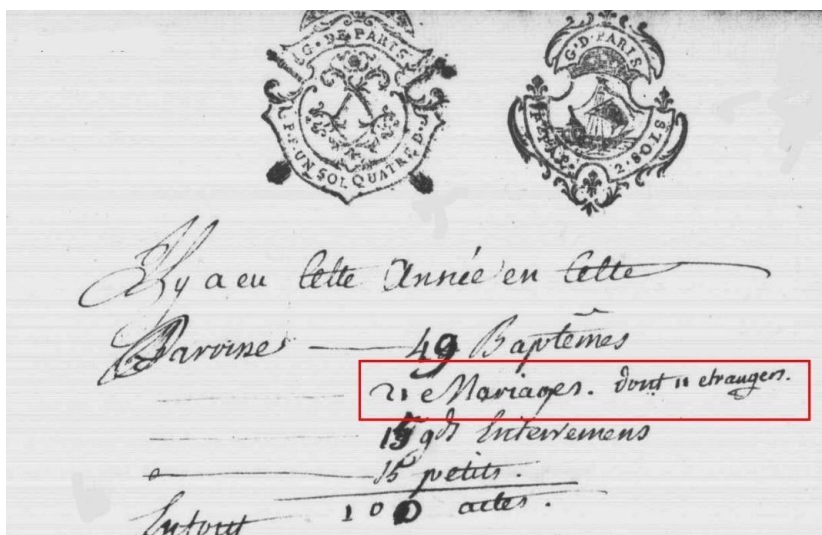 G. DE PARIS
P.P. UN SOL QUATRE D.
G. D. PARIS
2. SOLS
Il y a eu Cette Année en Cette
Paroisse 49 Baptêmes
21 Mariages. dont 11 etrangers.
15 gds Enterremens
15 petits.
Entout 100 actes.